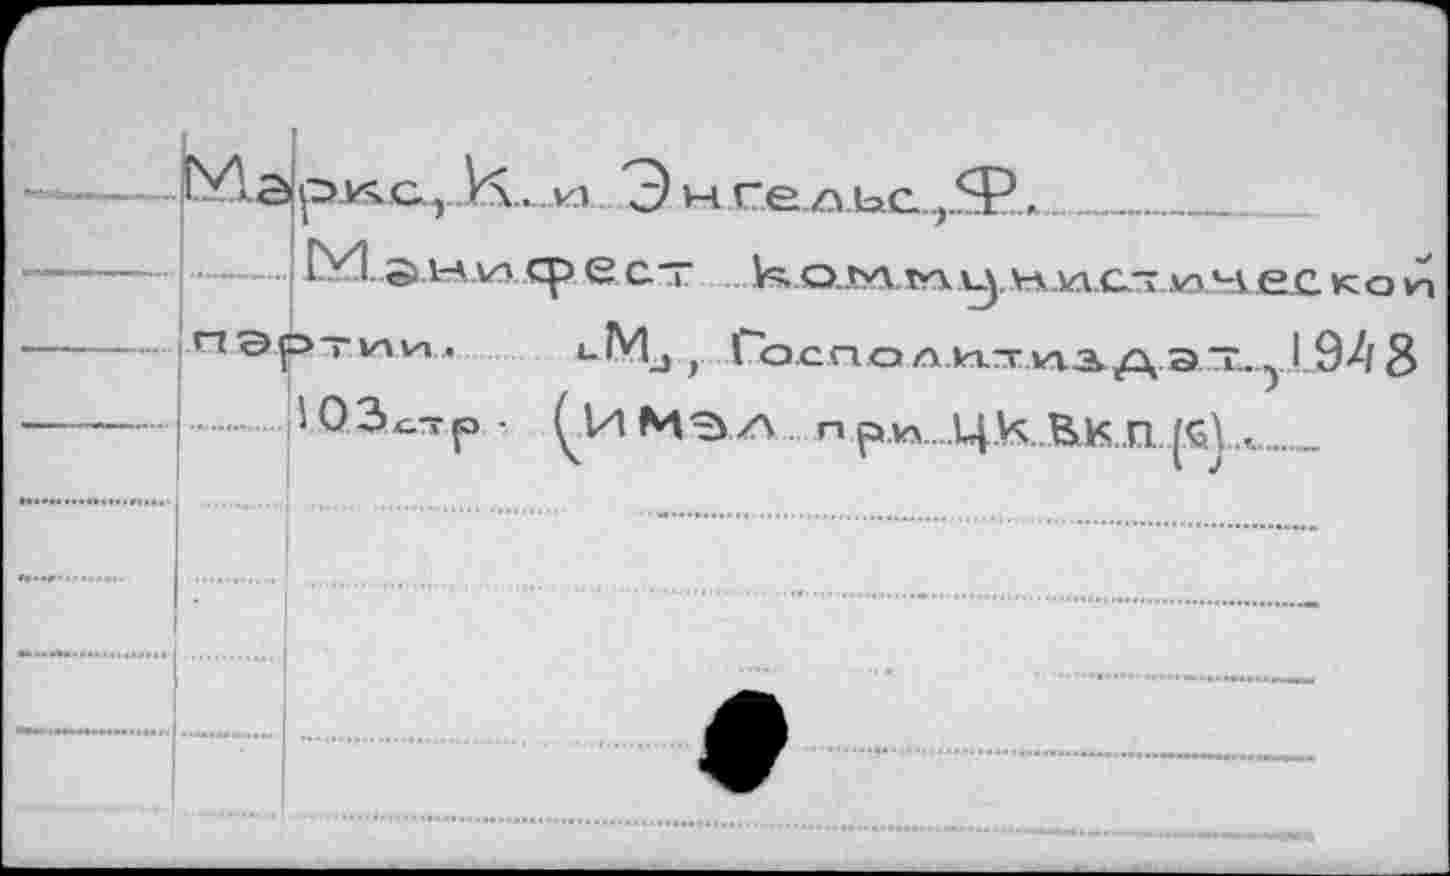 Маркс, К. и Энгельс, Ф.
Манифест Коммунистической
партии. [М], Госполитиздат, 1948
103стр. (ИМЭЛ при ЦК ВКП(б).